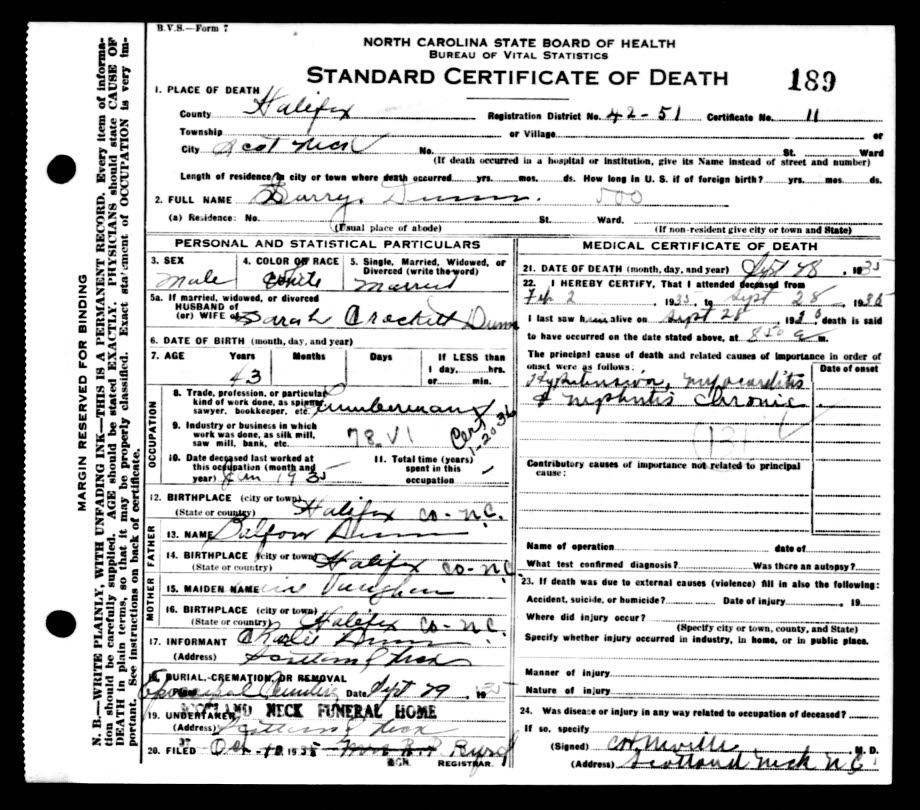 B.V.S.—Form 7
NORTH CAROLINA STATE BOARD OF HEALTH
BUREAU OF VITAL STATISTICS
STANDARD CERTIFICATE OF DEATH
189
1. PLACE OF DEATH
County Halifax Registration District No. 42-51 Certificate No. 11
Township or Village or
City Scot Neck No. St. Ward
(If death occurred in a hospital or institution, give its Name instead of street and number)
Length of residence in city or town where death occurred yrs. mos. ds. How long in U. S. if of foreign birth? yrs. mos. ds.
2. FULL NAME Durry Dunn. 500
(a) Residence: No. St. Ward.
(Usual place of abode) (If non-resident give city or town and State)
PERSONAL AND STATISTICAL PARTICULARS
3. SEX
Male
4. COLOR OR RACE
White
5. Single, Married, Widowed, or Divorced (write the word)
Married
5a. If married, widowed, or divorced
HUSBAND of
(or) WIFE of Sarah Crockett Dunn
6. DATE OF BIRTH (month, day, and year)
7. AGE Years Months Days If LESS than
1 day, hrs.
43 or min.
OCCUPATION
8. Trade, profession, or particular
kind of work done, as spinner,
sawyer, bookkeeper, etc. Lumberman
9. Industry or business in which
work was done, as silk mill,
saw mill, bank, etc. 78 VI
Cert 1-20 36
10. Date deceased last worked at
this occupation (month and
year) Jan 1935
11. Total time (years)
spent in this
occupation
12. BIRTHPLACE (city or town)
(State or country) Halifax Co- N.C.
FATHER
13. NAME Balfour Dunn
14. BIRTHPLACE (city or town)
(State or country) Halifax Co- N.C
MOTHER
15. MAIDEN NAME Vaughan
16. BIRTHPLACE (city or town)
(State or country) Halifax Co- N.C.
17. INFORMANT Charlie Dunn
(Address) Scotland Neck
18. BURIAL, CREMATION, OR REMOVAL
Place Episcopal Cemetery Date Sept 29 1935
19. UNDERTAKER SCOTLAND NECK FUNERAL HOME
(Address) Scotland Neck
20. FILED Oct 10 1935
REGISTRAR.
MEDICAL CERTIFICATE OF DEATH
21. DATE OF DEATH (month, day, and year) Sept 28, 1935
22. I HEREBY CERTIFY, That I attended deceased from
Feb 2, 1935, to Sept 28, 1935
I last saw him alive on Sept 28, 1935 death is said
to have occurred on the date stated above, at 850 a m.
The principal cause of death and related causes of importance in order of
onset were as follows: Date of onset
Hypertension, myocarditis
& nephritis chronic
(131)
Contributory causes of importance not related to principal
cause:
Name of operation date of
What test confirmed diagnosis? Was there an autopsy?
23. If death was due to external causes (violence) fill in also the following:
Accident, suicide, or homicide? Date of injury , 19
Where did injury occur?
(Specify city or town, county, and State)
Specify whether injury occurred in industry, in home, or in public place.
Manner of injury
Nature of injury
24. Was disease or injury in any way related to occupation of deceased?
If so, specify
(Signed) Neville M. D.
(Address) Scotland Neck N C
MARGIN RESERVED FOR BINDING
N. B.—WRITE PLAINLY, WITH UNFADING INK—THIS IS A PERMANENT RECORD. Every item of informa-
tion should be carefully supplied. AGE should be stated EXACTLY. PHYSICIANS should state CAUSE OF
DEATH in plain terms, so that it may be properly classified. Exact statement of OCCUPATION is very im-
portant. See instructions on back of certificate.